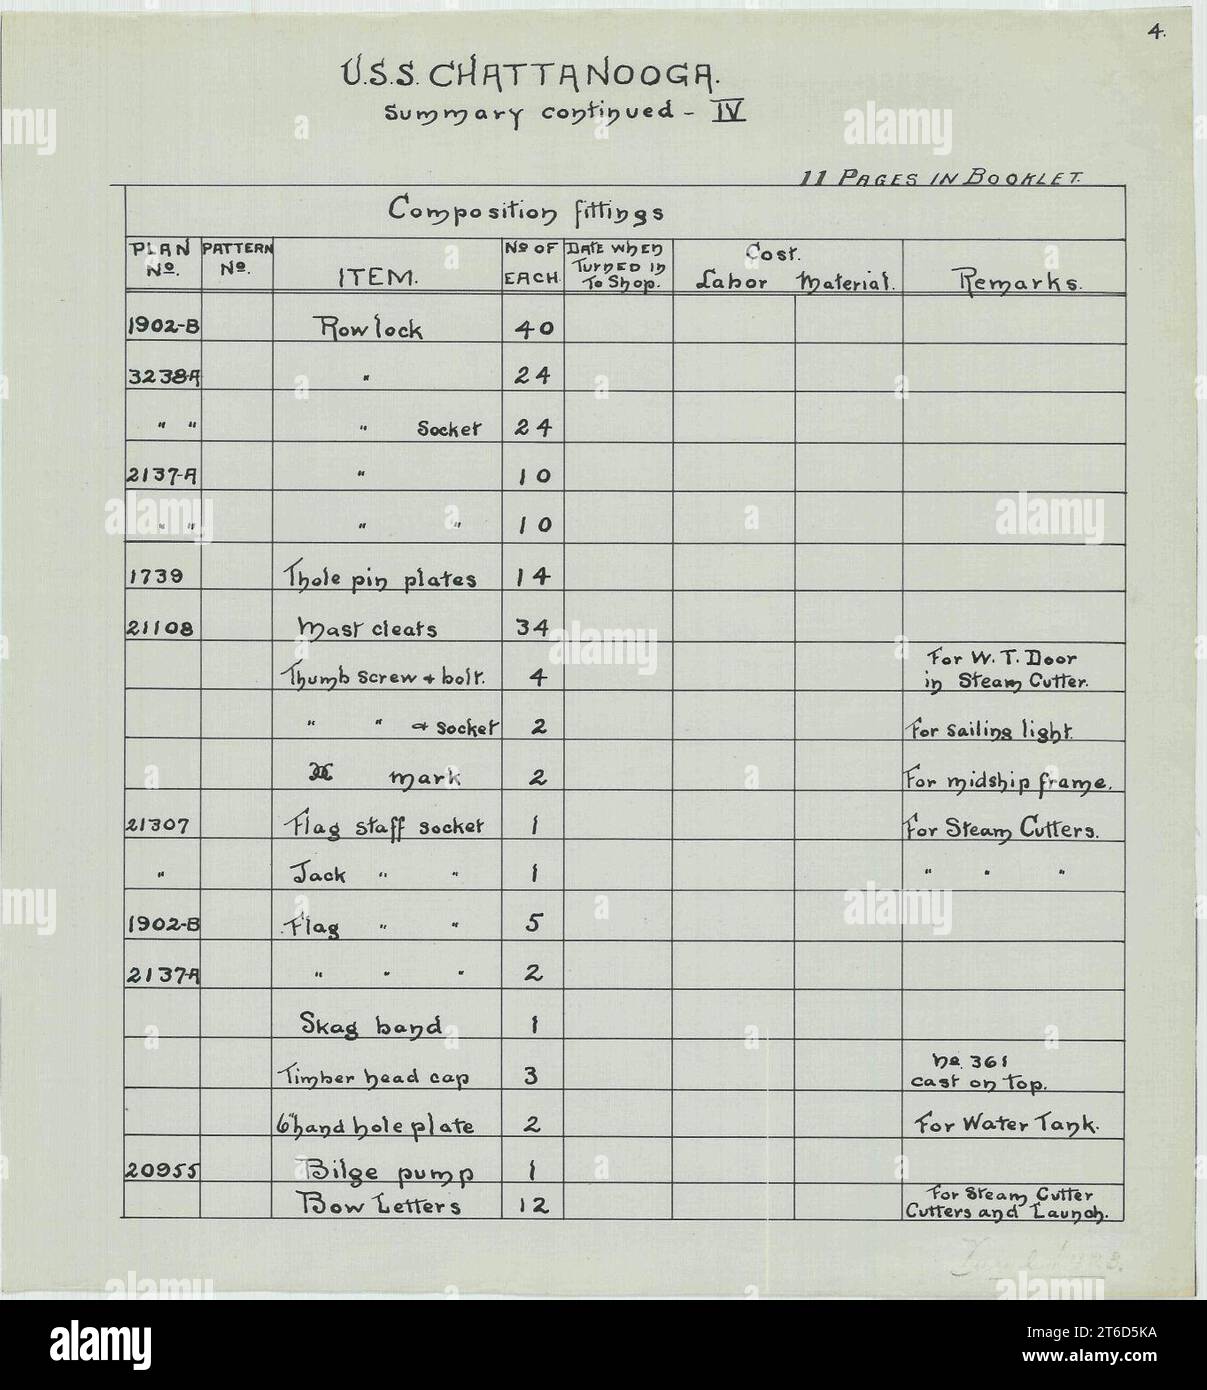 4.
U.S.S. CHATTANOOGA.
Summary continued - IV
11 PAGES IN BOOKLET.
Composition fittings
PLAN No. PATTERN No. ITEM. No OF EACH. DATE WHEN TURNED IN To Shop. Cost. Labor Material. Remarks.
1902-B Rowlock 40
3238-A " 24
" " " Socket 24
2137-A " 10
" " " " 10
1739 Thole pin plates 14
21108 Mast cleats 34
Thumb screw & bolt. 4 For W.T. Door
in Steam Cutter.
" " & socket 2 For sailing light.
mark 2 For midship frame.
21307 Flag staff socket 1 For Steam Cutters.
" Jack " " 1 " " "
1902-B Flag " " 5
2137-A " " " 2
Skag band 1
Timber head cap 3 No. 361
cast on top.
6" hand hole plate 2 For Water Tank.
20955 Bilge pump 1
Bow Letters 12 For Steam Cutter
Cutters and Launch.
alamy
Image ID: 2T6D5KA
www.alamy.com